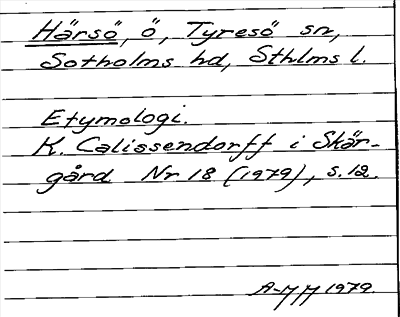 Härsö, ö, Tyresö sn,
Sotholms hd, Sthlms l.
Etymologi.
K. Calissendorff i Skär-
gård Nr 18 (1979), s. 12.
A-M M 1979.